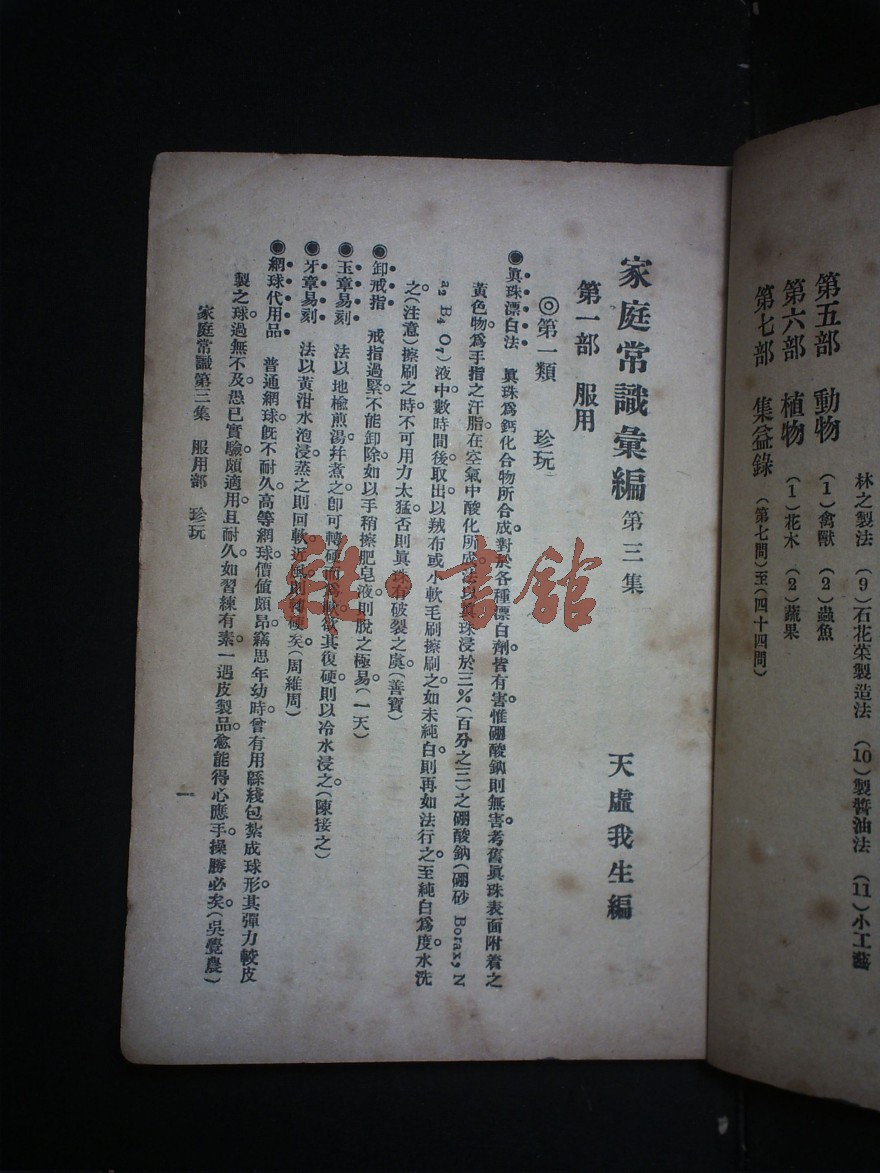 林之製法 (9)石花菜製造法 (10)製醬油法 (11)小工藝
第五部 動物 (1)禽獸 (2)蟲魚
第六部 植物 (1)花木 (2)蔬果
第七部 集益錄 (第七問)至(四十四問)
家庭常識彙編 第三集 天虛我生編
第一部 服用
◎第一類 珍玩
◉眞珠漂白法 眞珠爲鈣化合物所合成對於各種漂白劑皆有害惟硼酸鈉則無害考舊眞珠表面附着之
黃色物爲手指之汗脂在空氣中酸化所成法以眞珠浸於3%(百分之三)之硼酸鈉(硼砂 Borax, N
a₂ B₄ O₇)液中數時間後取出以羢布或小軟毛刷擦刷之如未純白則再如法行之至純白爲度水洗
之(注意)擦刷之時不可用力太猛否則眞珠有破裂之虞(善寶)
◉卸戒指 戒指過緊不能卸除如以手稍擦肥皂液則脫之極易(一天)
◉玉章易刻 法以地楡煎湯幷煮之卽可轉硬而爲軟欲其復硬則以冷水浸之(陳接之)
◉牙章易刻 法以黃泔水泡浸蒸之則回軟近風則轉硬矣(周維周)
◉網球代用品 普通網球旣不耐久高等網球價值頗昂竊思年幼時曾有用緜綫包紮成球形其彈力較皮
製之球過無不及愚已實驗頗適用且耐久如習練有素一遇皮製品愈能得心應手操勝必矣(吳覺農)
家庭常識第三集 服用部 珍玩
一
雜·書館